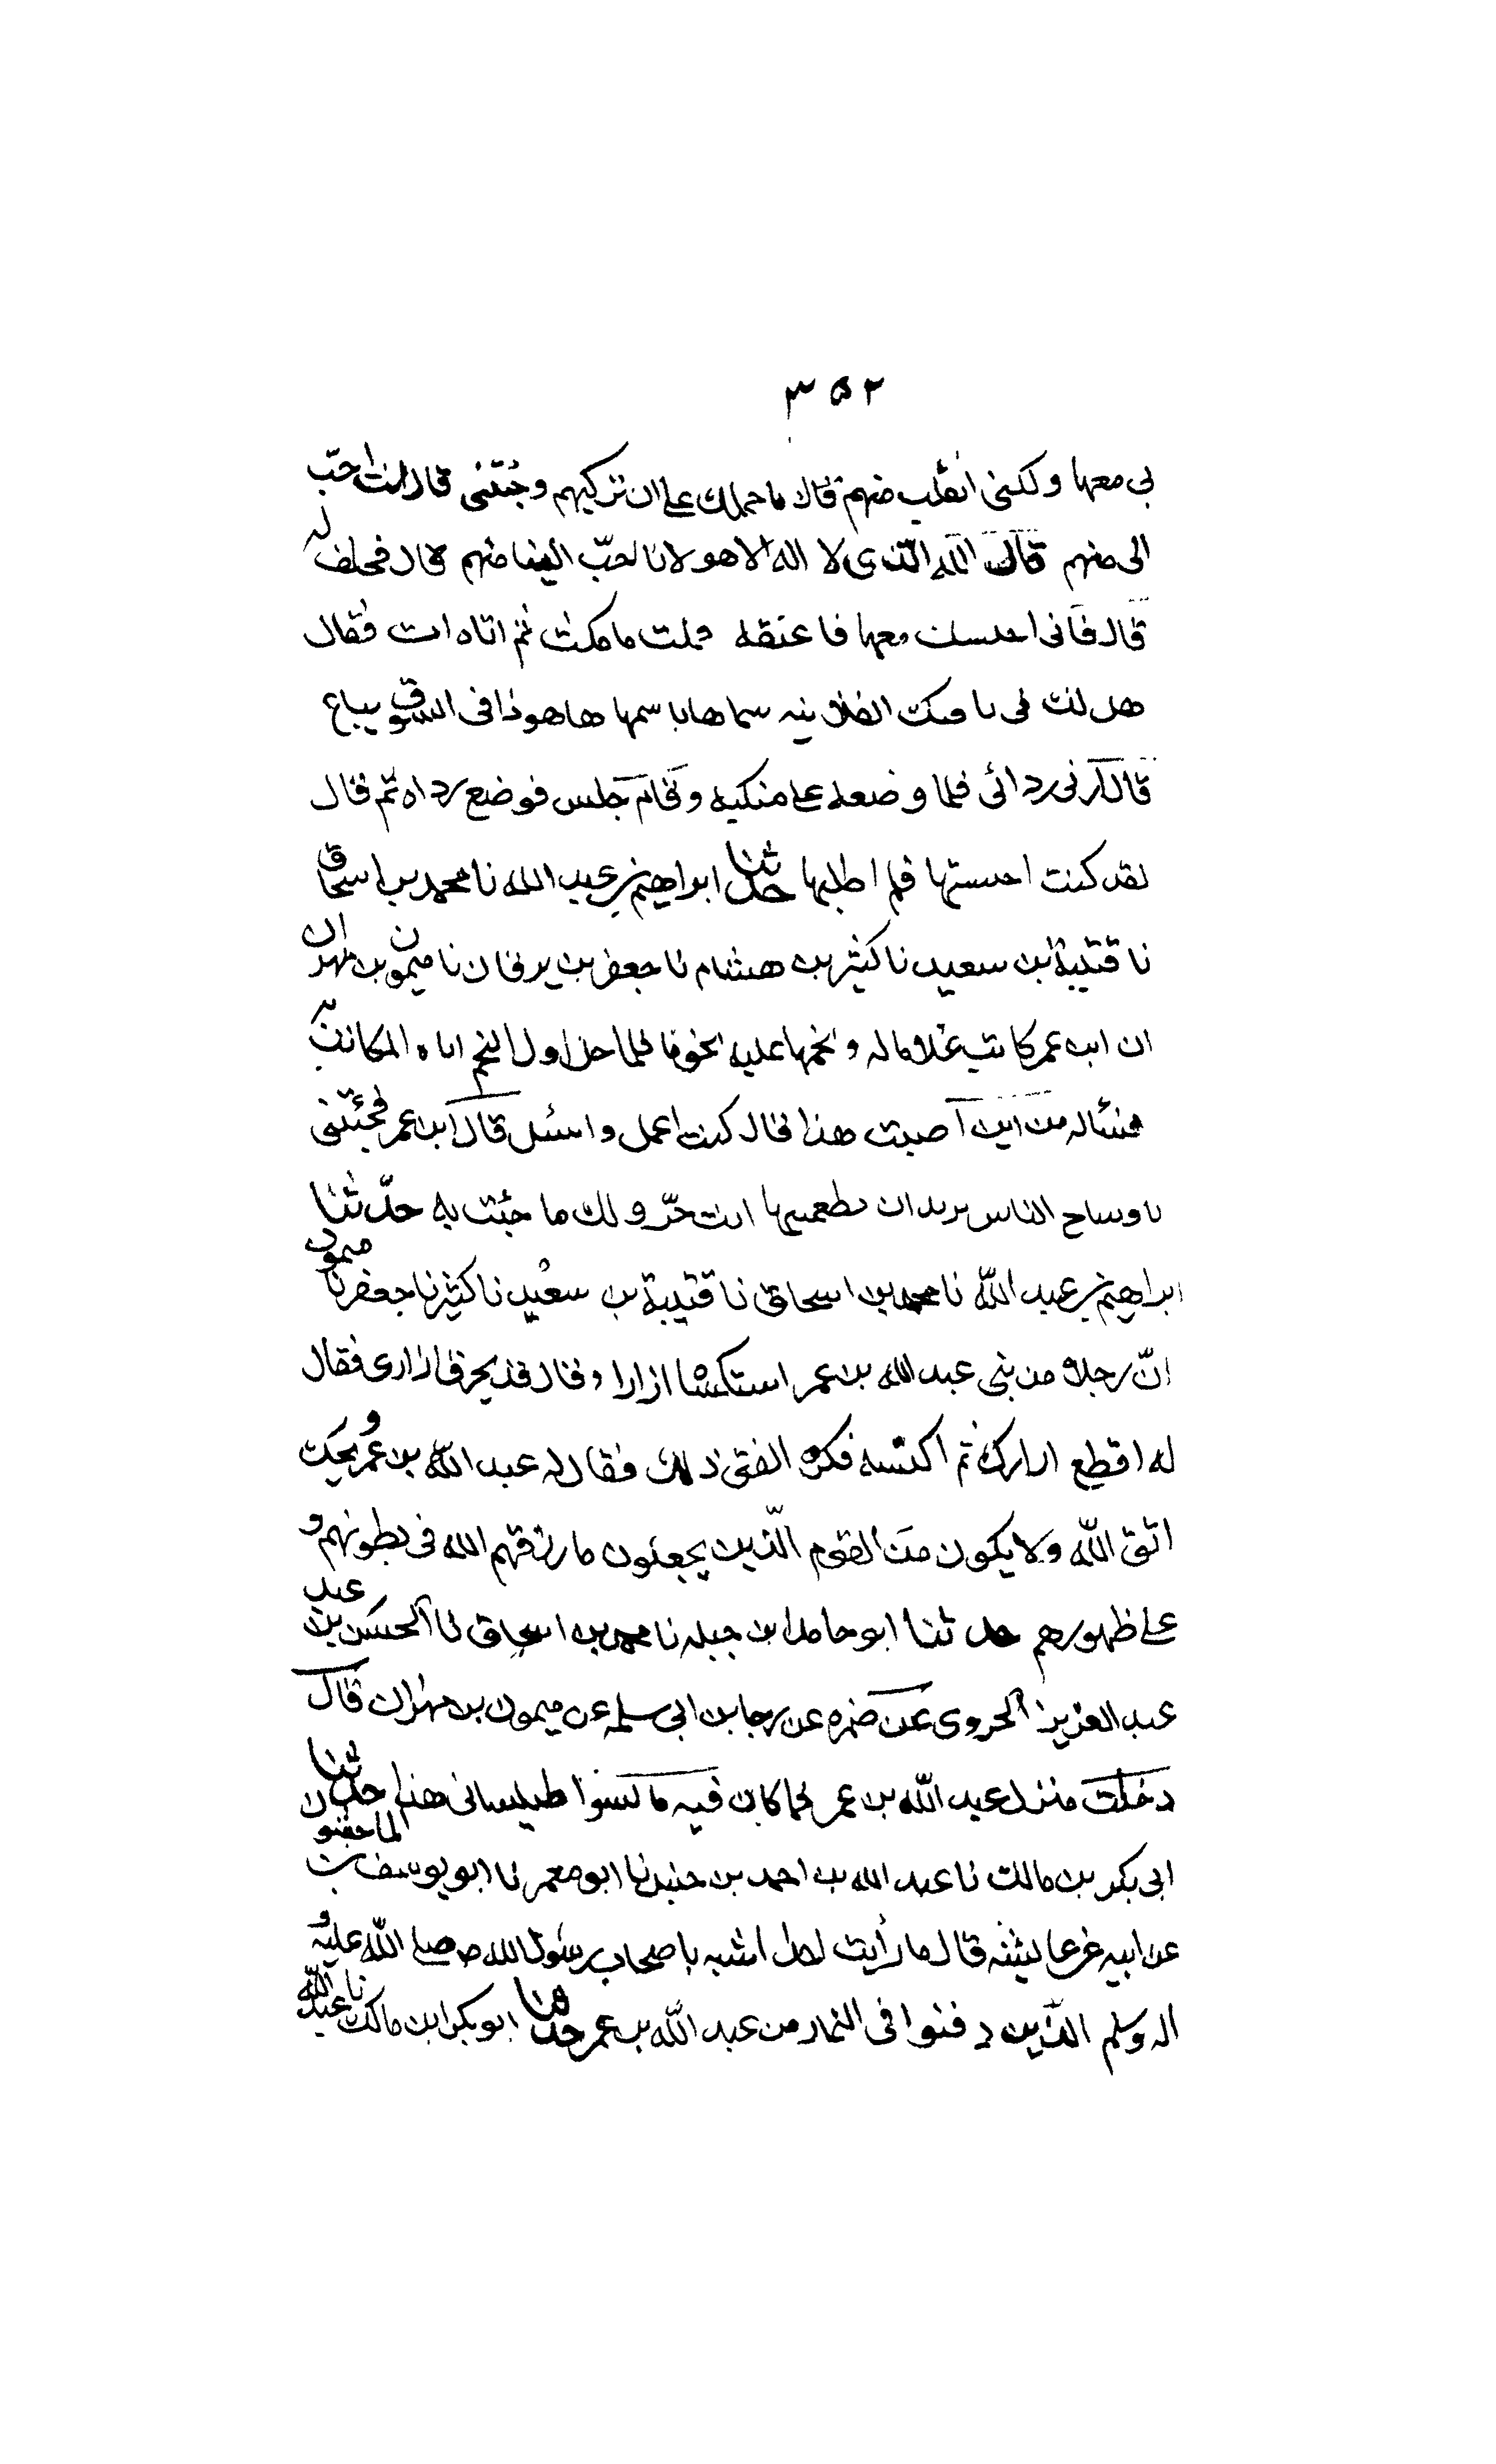 ٣٥٢
بى معها ولكنى انفلت منهم قال ما حملك على ان تركتهم وجئتنى قال انت احبّ
الى منهم قال الله الّذى لا اله الا هو لانا احبّ اليك منهم قال فحلف له
قال فانى احتسبك معها فاعتقه فمكث ما مكث ثم اتاه ات فقال
هل لك فى ناقتك الفلانيه سماها باسمها هاهو ذا فى السوق يباع
قال ارنى ردائى فلما وضعه على منكبيه وقام جلس فوضع رداه ثم قال
لقد كنت احتسبتها فلم اطلبها حدثنا ابراهيم بن عبد الله نا محمد بن اسحاق
نا قتيبة بن سعيد نا كثير بن هشام نا جعفر بن برقان نا ميمون بن مهران
ان ابن عمر كاتب غلاما له ونجمها عليه نجوما فلما حل اول النجم اتاه المكاتب
فسئاله من اين اصبت هذا قال كنت اعمل واسئل قال ابن عمر فجئتنى
باوساخ الناس يريد ان تطعمنيها انت حرّ ولك ما جئت به حدّثنا
ابراهيم بن عبد الله نا محمد بن اسحاق نا قتيبة بن سعيد نا كثير نا جعفر نا ميمون
انّ رجلا من بنى عبد الله بن عمر استكساه ازارا وقال قد تخرق ازارى فقال
له اقطع ازارك ثم اكتسه فكره الفتى ذلك فقال له عبد الله بن عمر ويحك
اتق الله ولا يكون من القوم الّذين يجعلون ما رزقهم الله فى بطونهم و
على ظهورهم حدثنا ابو حامد ابن جبله نا محمد بن اسحاق نا الحسن بن عبد
عبد العزيز الحروى عن ضمره عن رجا بن ابى سلمه عن ميمون بن مهران قال
دخلت منزل عبد الله بن عمر فما كان فيه ما يسوا طيلسانى هذا حدثنا
ابى بكر بن مالك نا عبد الله بن احمد بن حنبل نا ابو معمر نا ابو يوسف بن الماجشون
عن ابيه عن عايشه قال ما رأيت احدا اشبه باصحاب رسول الله صلى الله عليه و
اله وسلم الّذين دفنوا فى النمار من عبد الله بن عمر حدثنا ابو بكر ابن مالك نا عبد الله